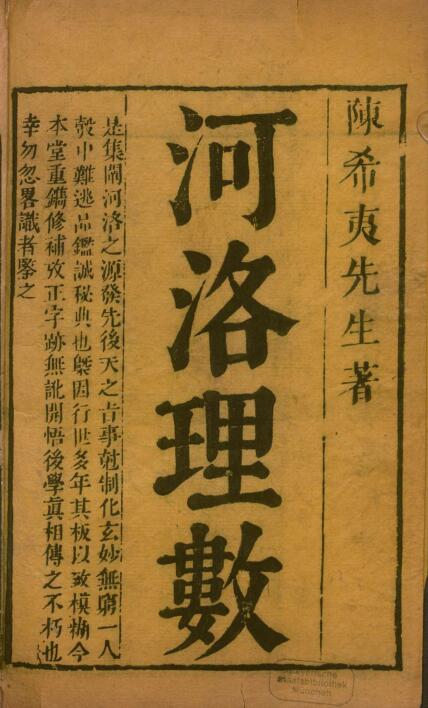 陳希夷先生著
河洛理數
是集闡河洛之源發先後天之旨事對制化玄妙無窮一人
彀中難逃品鑑誠秘典也槩因行世多年其板以致模糊今
本堂重鐫修補攷正字跡無訛開悟後學眞相傳之不朽也
幸勿忽畧識者鑒之
Bayerische
Staatsbibliothek
München